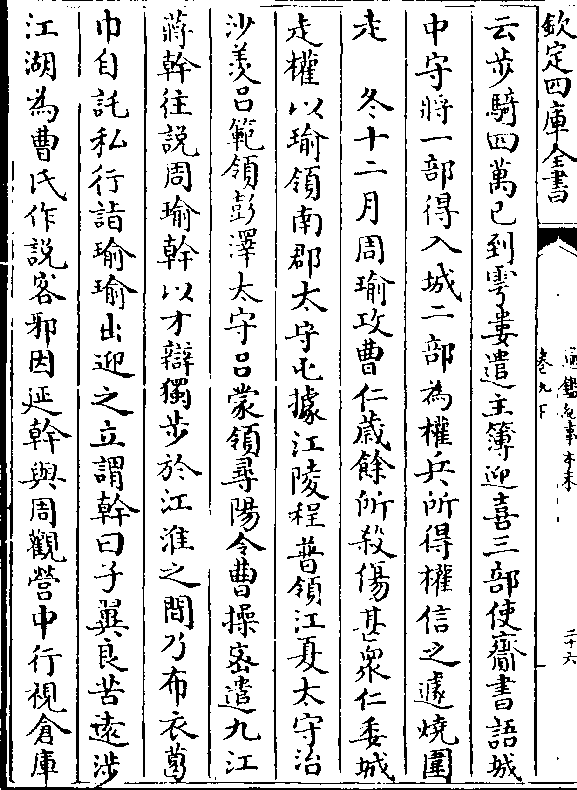 欽定四庫全書
通鑑紀事本末
卷九下
二十六
云步騎四萬已到雩婁遣主簿迎喜三部使齎書語城
中守將一部得入城二部為權兵所得權信之遽燒圍
走　冬十二月周瑜攻曹仁歲餘所殺傷甚衆仁委城
走權以瑜領南郡太守屯據江陵程普領江夏太守治
沙羡吕範領彭澤太守吕蒙領尋陽令曹操密遣九江
蔣幹往說周瑜幹以才辯獨步於江淮之間乃布衣葛
巾自託私行詣瑜瑜出迎之立謂幹曰子翼良苦遠涉
江湖為曹氏作說客邪因延幹與周觀營中行視倉庫